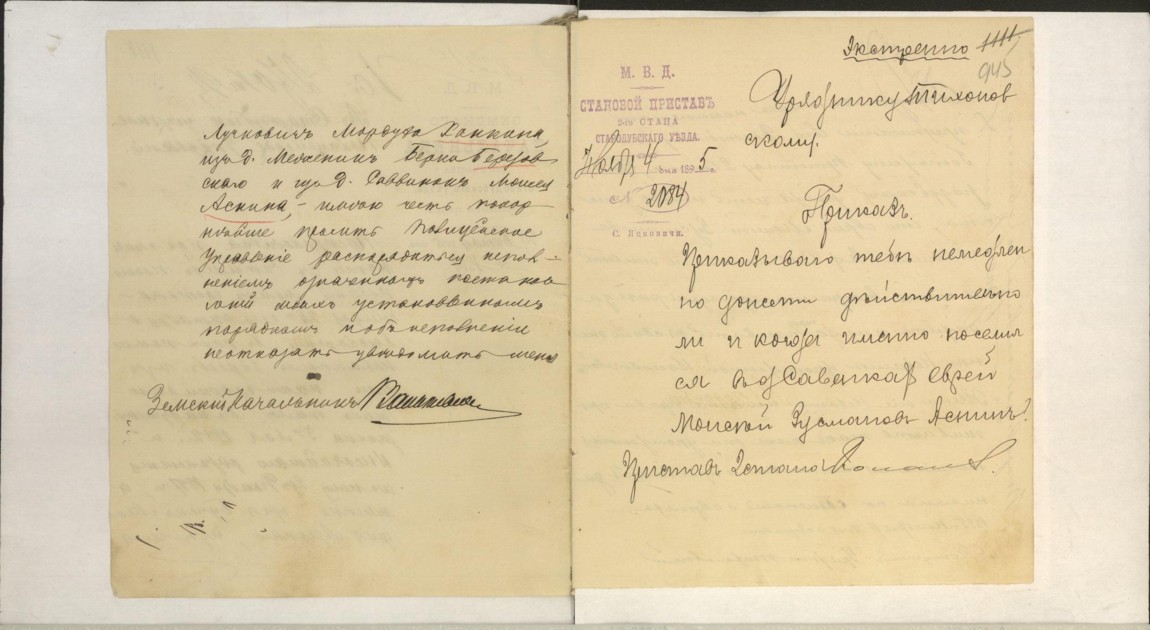 Лучкович Мордуха Ханкина,
из д. Мелженик Берна Березов
скаго и из д. Саввинок Мовши
Аснина, – имею честь покор
нейше просить Полицейское
Управленіе распорядиться испол-
неніемъ означенныхъ постанов
леній моихъ установленнымъ
порядкомъ и объ исполненіи
неотказать увѣдомить меня
Земскій Начальникъ
Экстренно
945
М. В. Д.
СТАНОВОЙ ПРИСТАВЪ
2-го СТАНА
СТАРОДУБСКАГО УѢЗДА.
Ноября 4 дня 1895 г.
№ 2084
Уряднику Тихонов
скому.
Приказъ.
Приказываю тебѣ немедлен
но донести дѣйствительно
ли и когда именно поселил
ся въ д Савенкахъ Еврей
Мовсей Зусмановъ Аснинъ?
Приставъ 2 стана